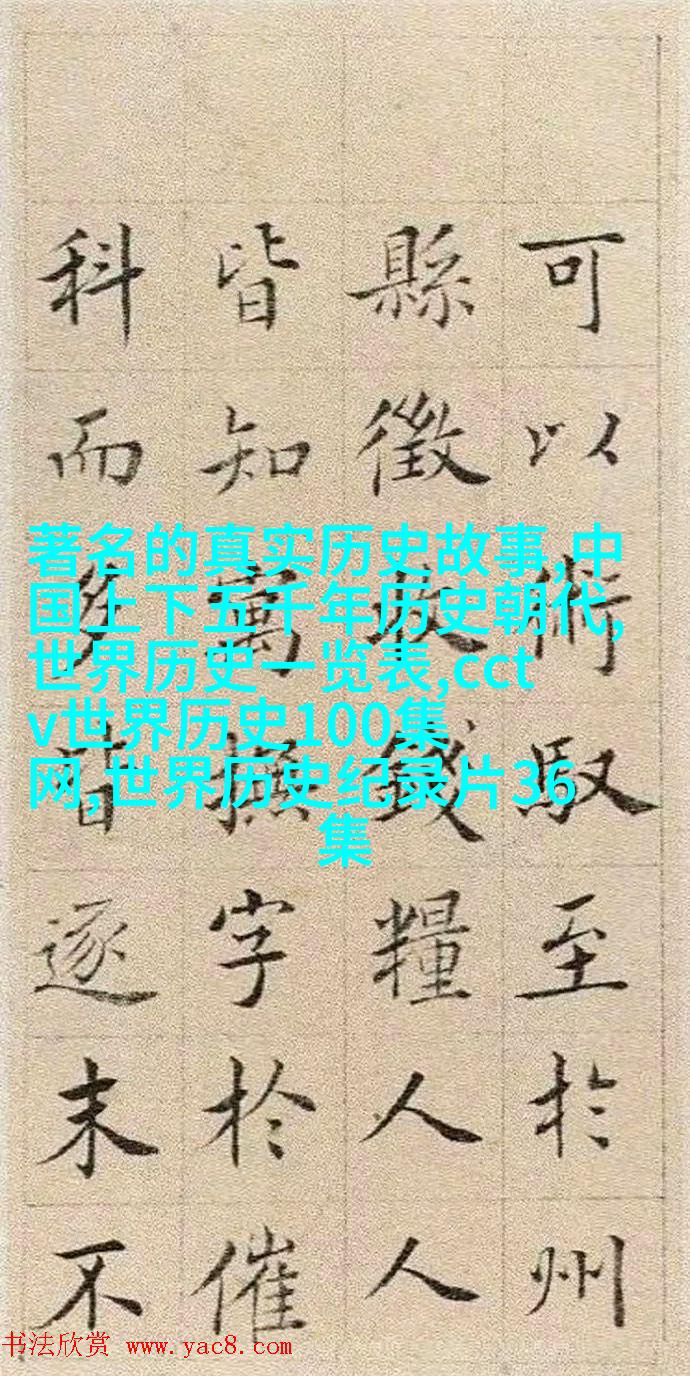 可以術馭至於州
縣徵收錢糧人人
皆知寓撫字於催
科而多皆逐末不
著名的真实历史故事,中
国上下五千年历史朝代,
世界历史一览表,cct
v世界历史100集
网,世界历史纪录片36
集
书法欣赏 www.yac8.com